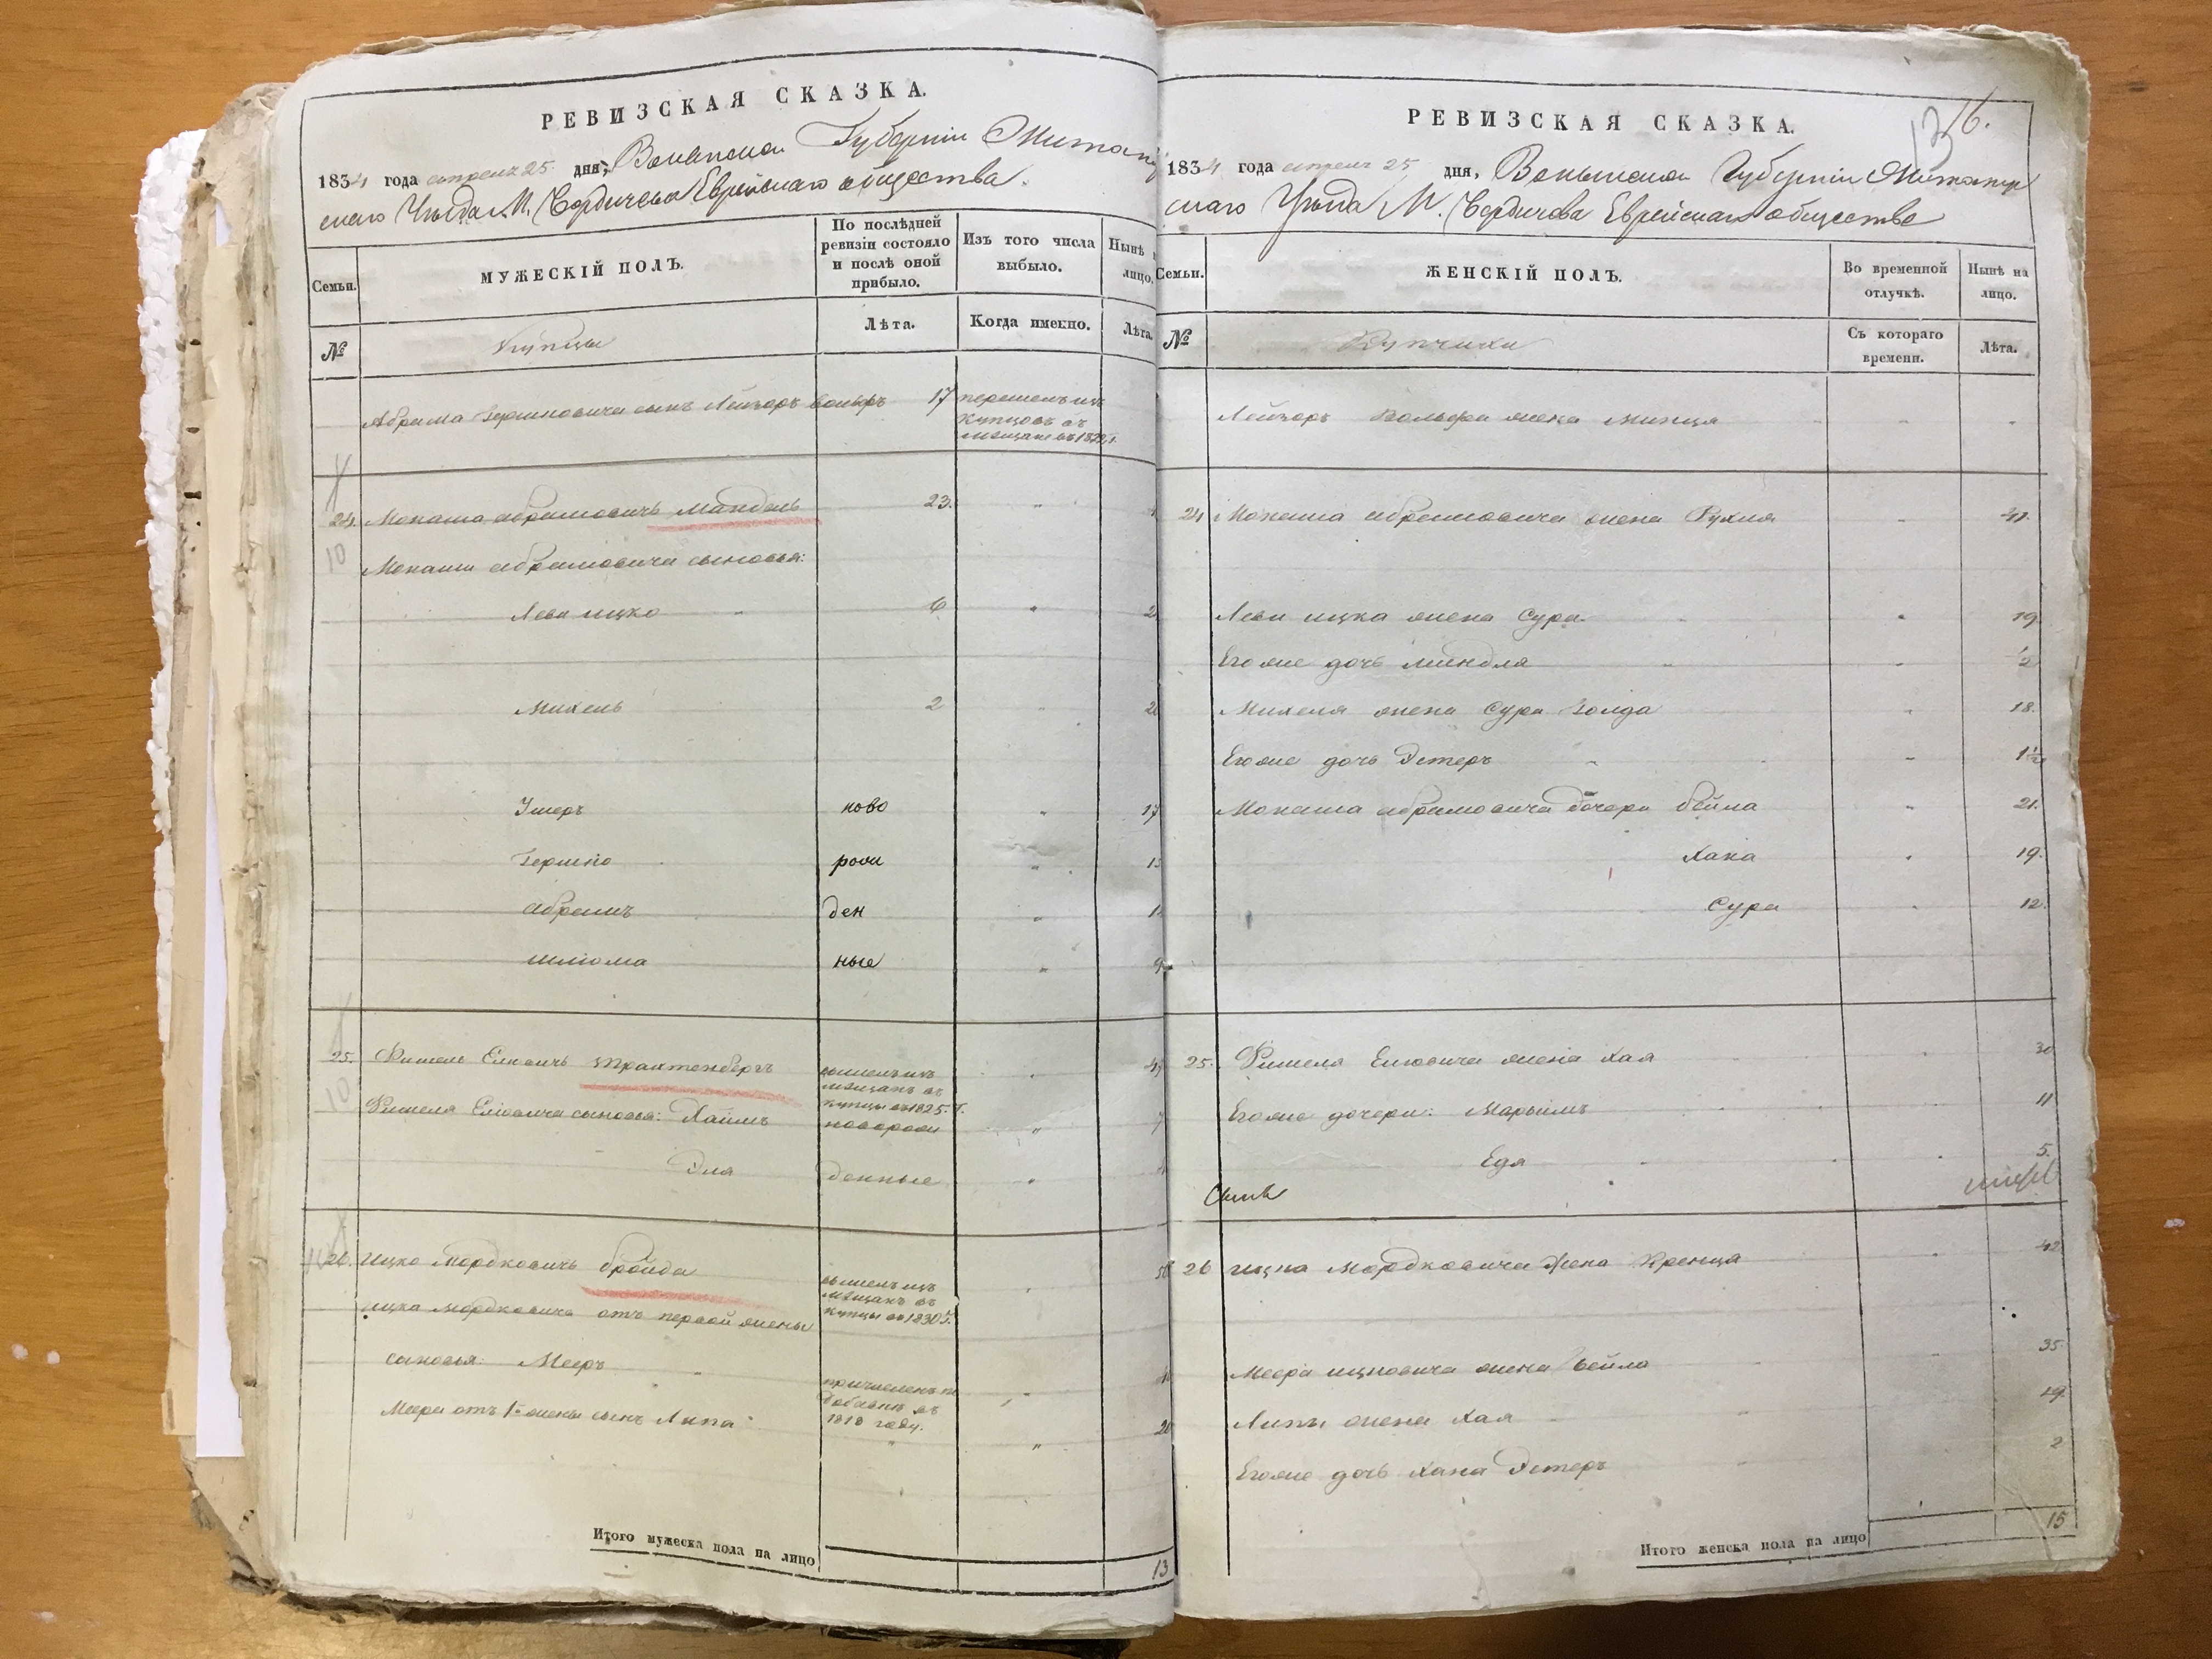 РЕВИЗСКАЯ СКАЗКА.
1834 года апреля 25 дня, Волынской Губерніи Житомир
скаго Уѣзда М. Бердичева Еврейскаго общества.
Семьи.
МУЖЕСКІЙ ПОЛЪ.
По послѣдней ревизіи состояло и послѣ оной прибыло.
Изъ того числа выбыло.
Нынѣ
лицо.
№
Купцы
Лѣта.
Когда именно.
Лѣта.
Абрама Гершковича сынъ Лейзоръ Вольфъ 17 перешелъ изъ
купцовъ въ
мѣщане въ
24. Монаша Абрамовичъ Мандель 23.
10
Монаша Абрамовича сыновья:
Леви ицко 6
Михель 2
Ушеръ ново 17
Гершко рож
Абрамъ ден
шліома ные 9
25. Фишель Елиовичъ Трахтенбергъ вышелъ изъ
мѣщанъ въ
купцы въ 1825. г.
10
Фишеля Елиовича сыновья: Хаимъ новорож 7
Эля денные
26. Ицко Мордковичъ бройда вышелъ изъ
мѣщанъ въ
купцы въ 1830 г.
ицка Мордковича отъ первой жены
сыновья: Мееръ
Меера отъ 1й жены сынъ Липа
1818 году.
Итого мужеска пола на лицо 13
РЕВИЗСКАЯ СКАЗКА.
16.
13
1834 года апреля 25 дня, Волынской Губерніи Житомир
скаго Уѣзда М. Бердичева Еврейскаго общества
Семьи.
ЖЕНСКІЙ ПОЛЪ.
Во временной отлучкѣ.
Нынѣ на лицо.
№
Купчихи
Съ котораго времени.
Лѣта.
Лейзоръ Вольфа жена Минця
24 Монаша Абрамовича жена Рухля 41.
Леви ицка жена Сура 19
Его же дочь миндля 1/2
Михеля жена Сура Голда 18.
Его же дочь Эстеръ 1 1/2
Монаша Абрамовича дочери бейла 21.
Хана 19.
Сура 12.
25. Фишеля Елиовича жена Хая 30
Его же дочери: Марьимъ 11
Едя 5.
26 ицка Мордковича Жена Кренця 42
Меера ицковича жена бейла 35
Липы жена Хая 19
Его же дочь Хана Эстеръ 2
Итого женска пола на лицо 15